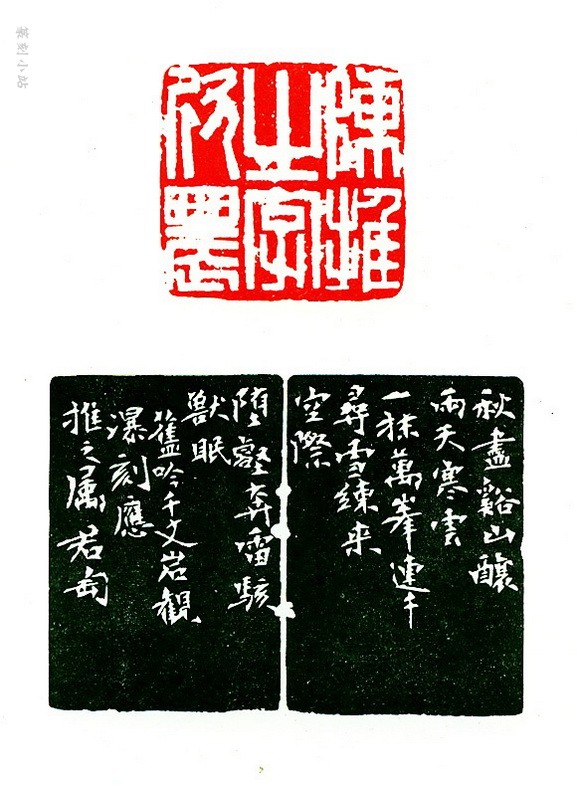 篆刻小站
陳推
之
秋盡谿山釀
雨天寒雲
一抹萬峯連千
尋雪練来
空際
墮壑奔雷駭
獸眠
舊吟千丈岩觀
瀑刻應
推之屬若匋